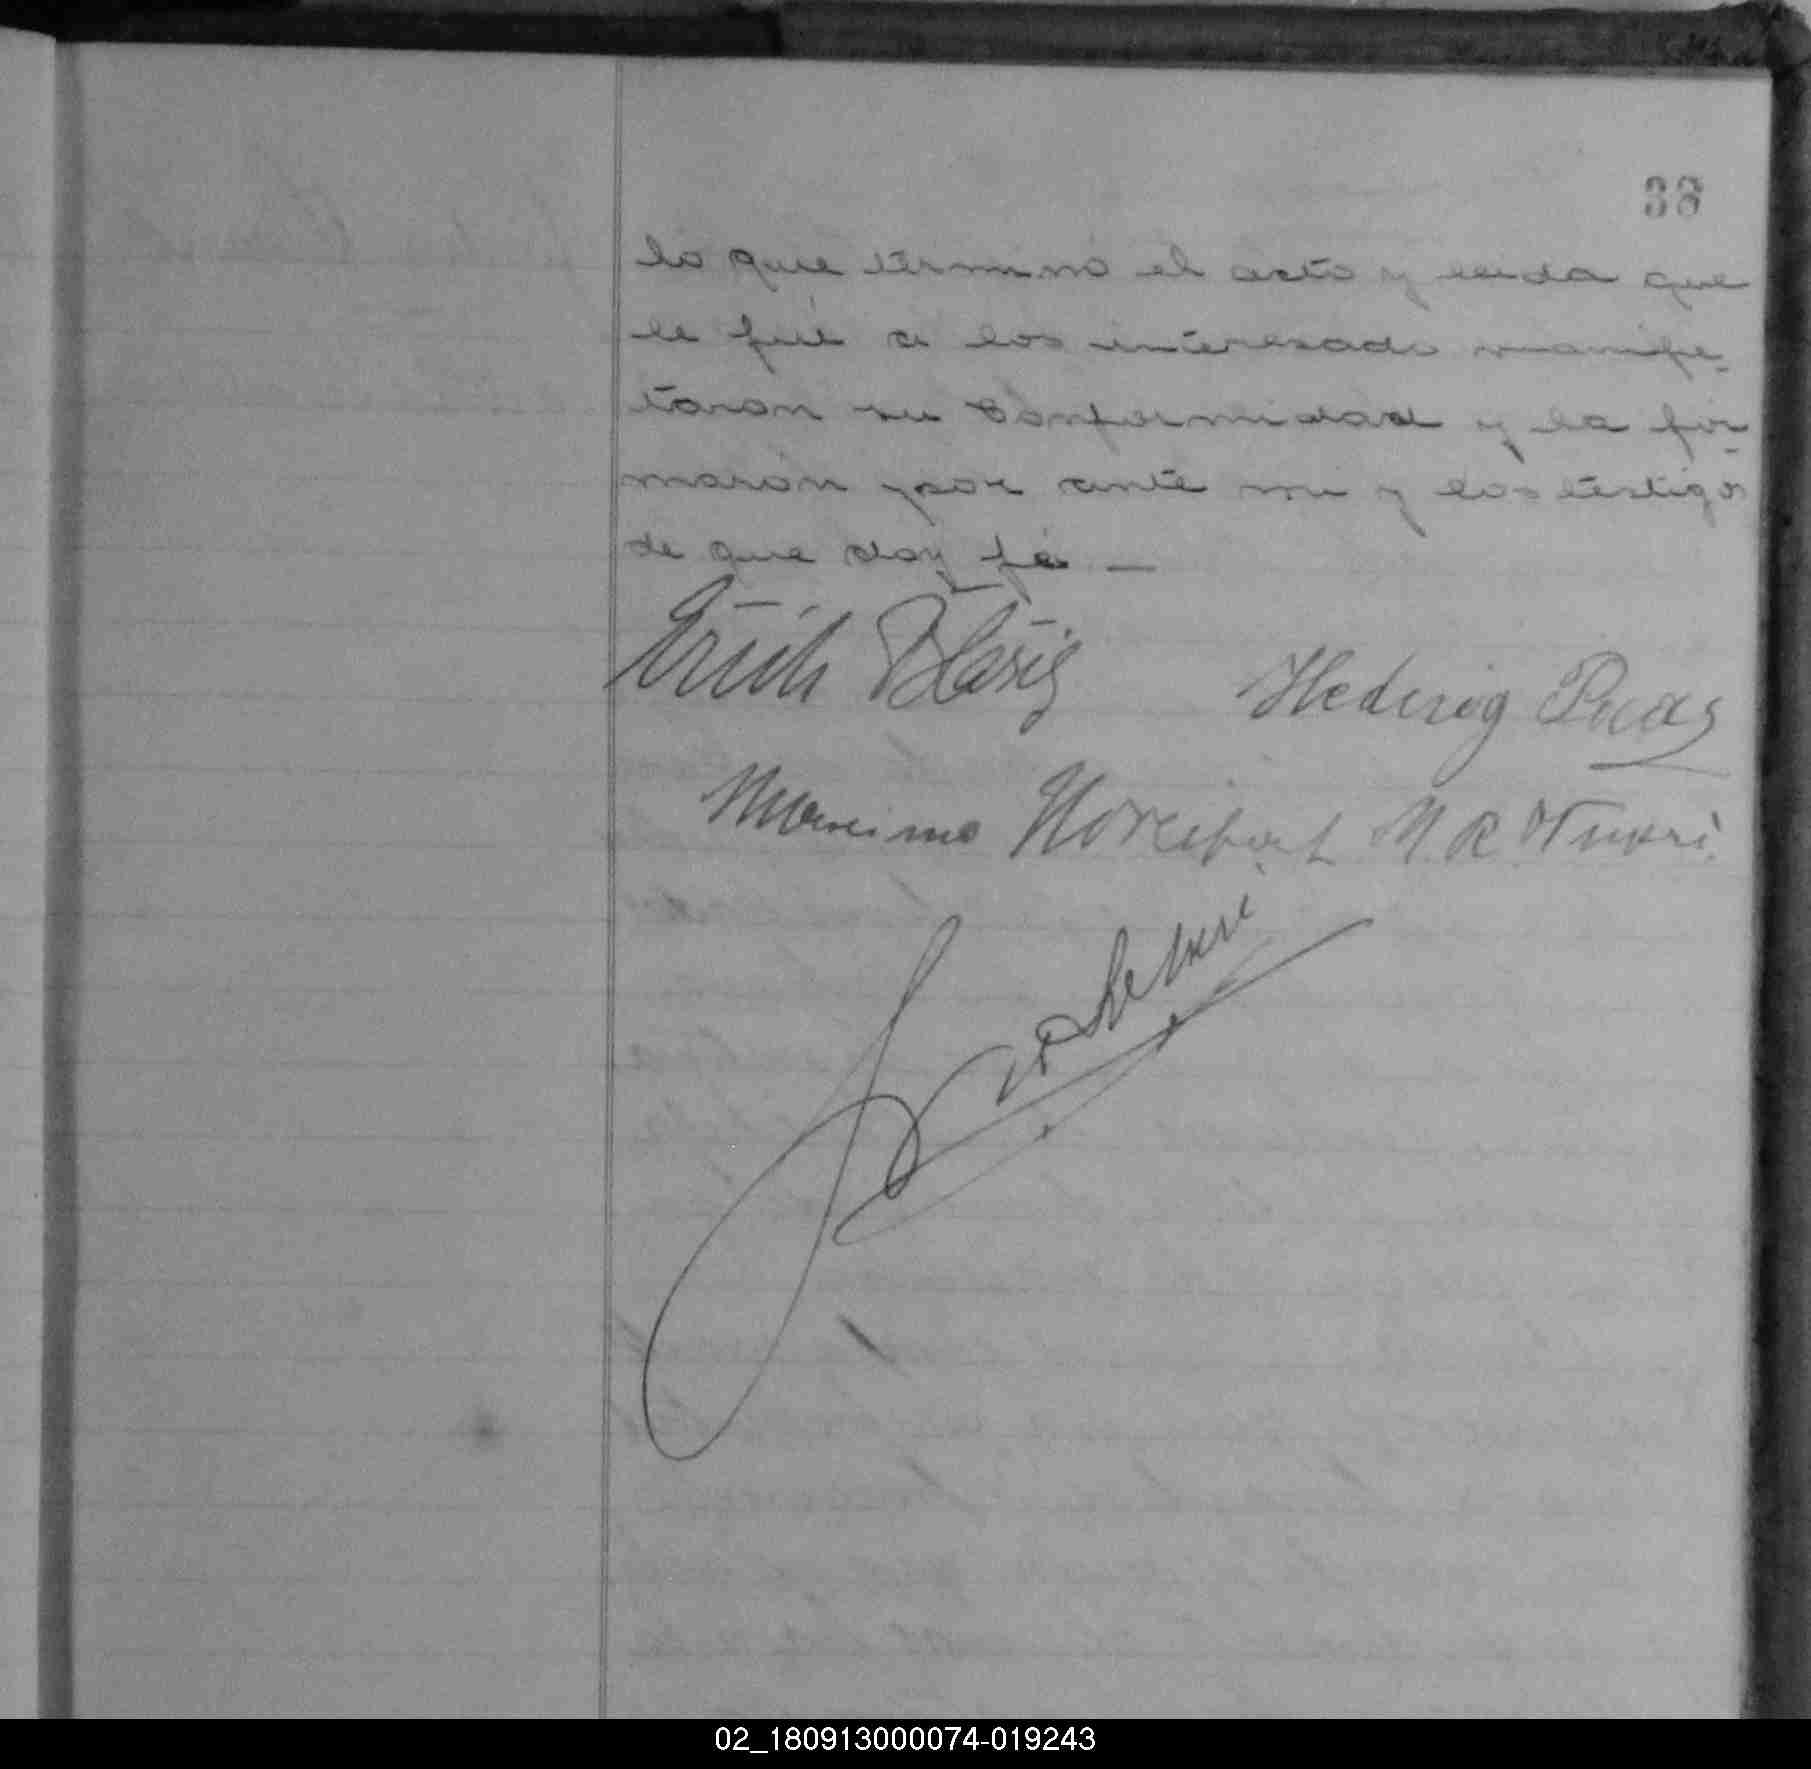 38
lo que terminó el acto y leida que
le fué a los interesado manife-
taron su conformidad y la fir-
maron por ante mi y los testigos
de que doy fé —
Erich
Hedwig
Maximo M R
02_180913000074-019243